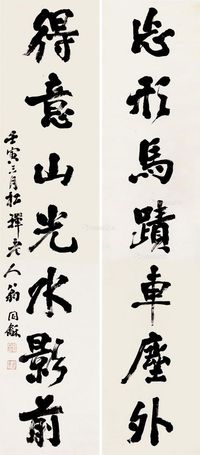 忘形馬蹟車塵外
得意山光水影前
壬寅三月松禪老人翁同龢